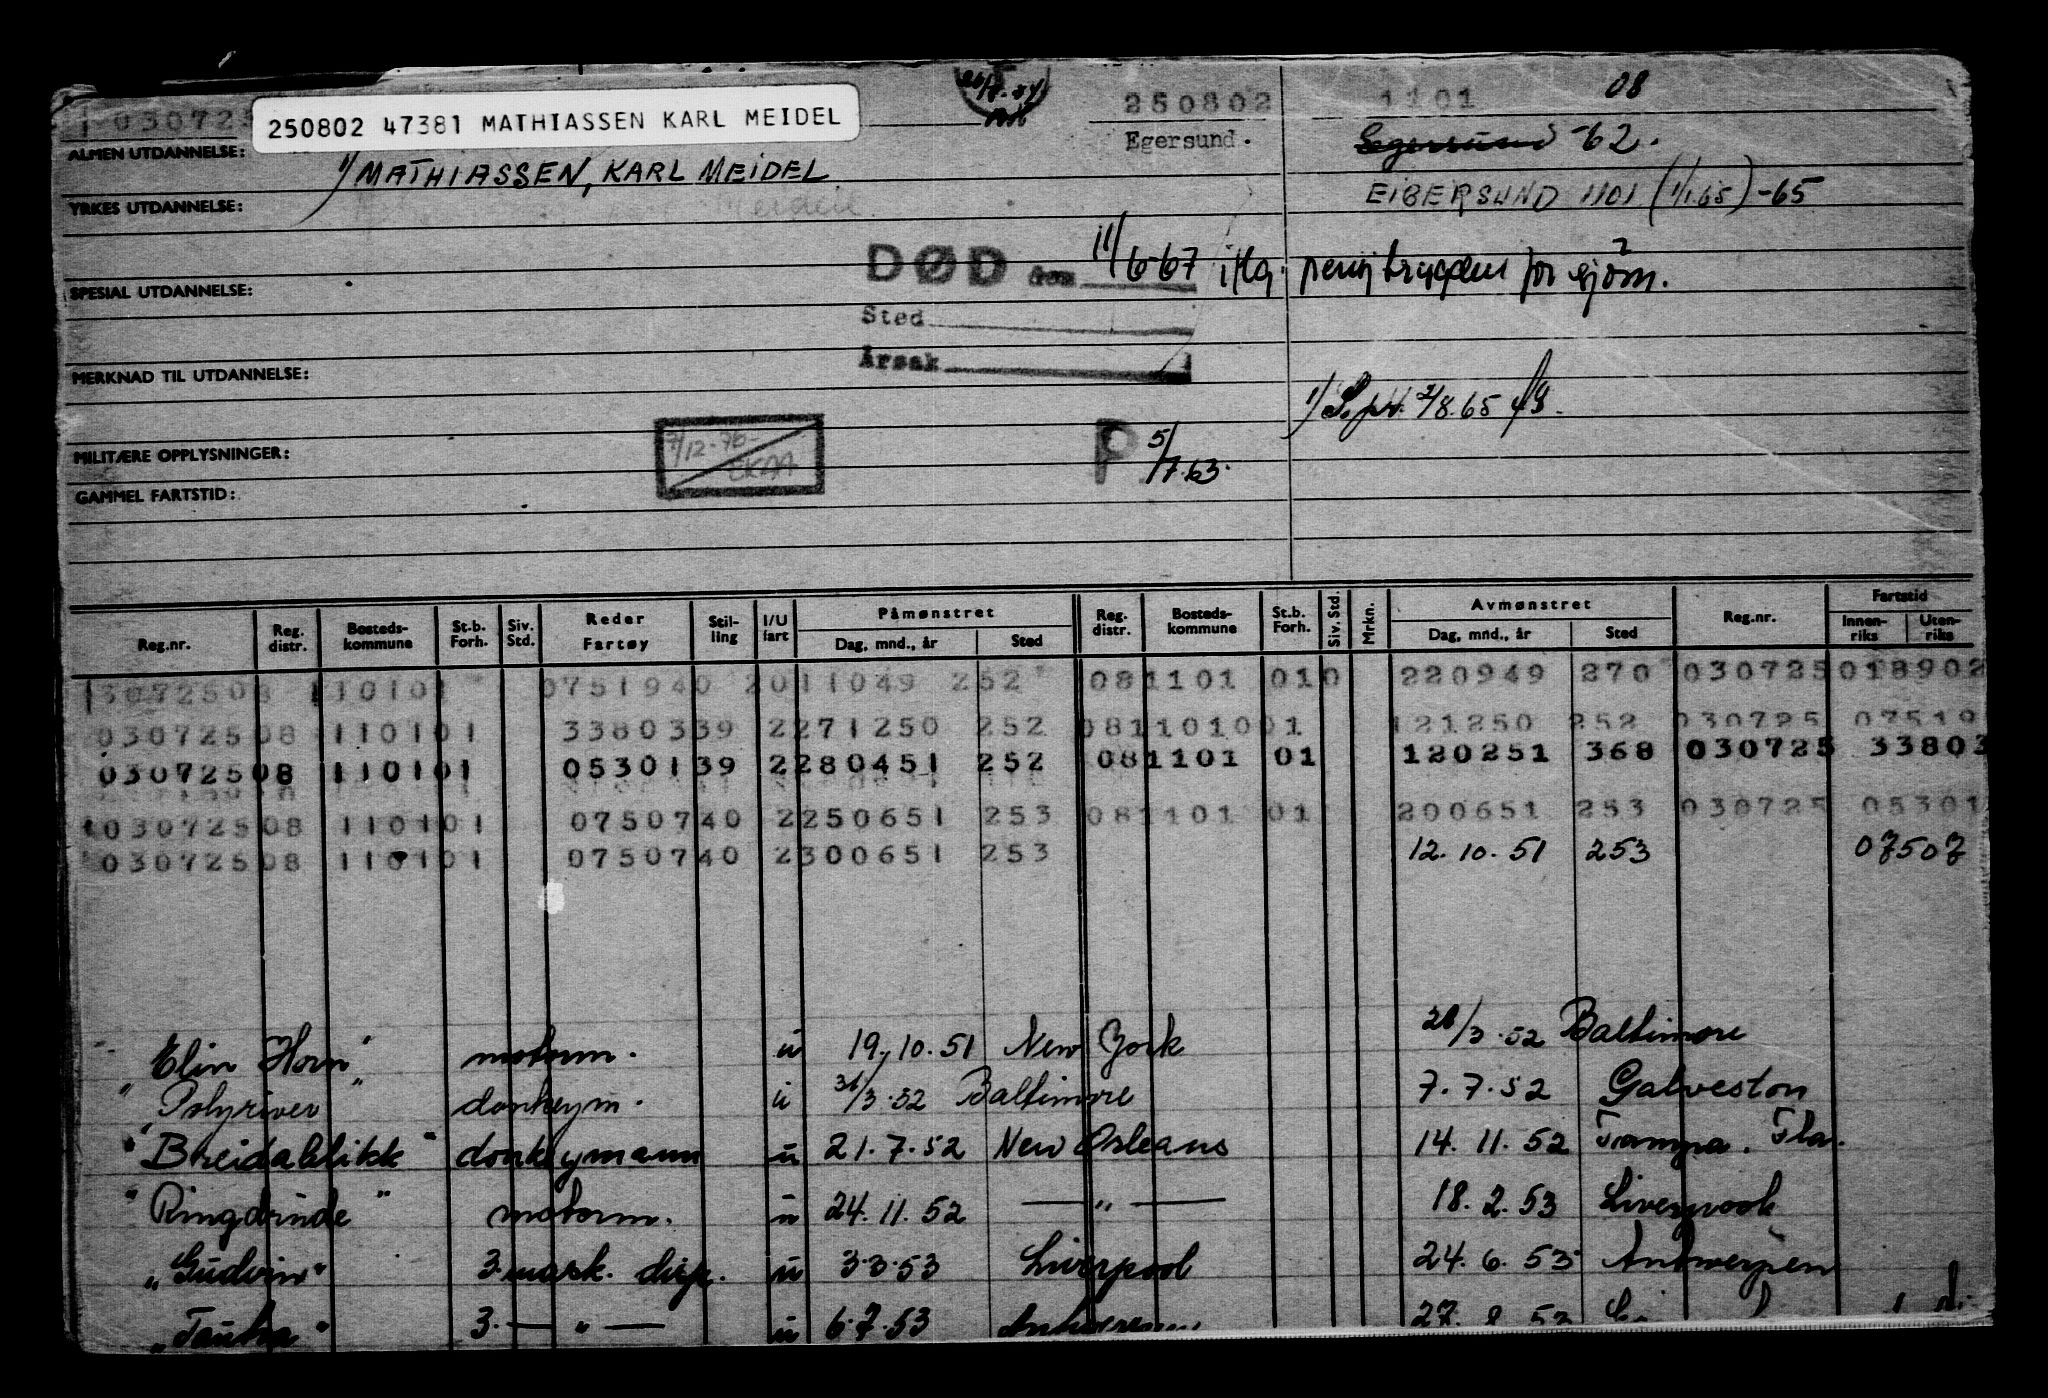 030725
250802 47381 MATHIASSEN KARL MEIDEL
250802
Egersund.
1101
08
Egersund -62.
EIBERSUND 1101 (1/1.65) -65
ALMEN UTDANNELSE:
1/ MATHIASSEN, KARL MEIDEL
YRKES UTDANNELSE:
DØD den 11/6-67 iflg. pensjtrygden for sjøm.
SPESIAL UTDANNELSE:
Sted
Årsak
MERKNAD TIL UTDANNELSE:
2/8.65
MILITÆRE OPPLYSNINGER:
7/12-76
EKM
P 5/7.63.
GAMMEL FARTSTID:
Reg.nr. Reg. distr. Bosteds-kommune St.b. Forh. Siv. Std. Reder Fartøy Stil-ling I/U fart Påmønstret Dag, mnd., år Sted Reg. distr. Bosteds-kommune St.b. Forh. Siv. Std. Mrkn. Avmønstret Dag, mnd., år Sted Reg.nr. Fartstid Innen-riks Uten-riks
3072508 110101 0751940 2011049 252 081101 010 220949 270 030725 018902
03072508 110101 3380339 2271250 252 081101001 121250 252 030725 07519
03072508 110101 0530139 2280451 252 081101 01 120251 368 030725 33803
03072508 110101 0750740 2250651 253 081101 01 200651 253 030725 05301
03072508 110101 0750740 2300651 253 12.10.51 253 07507
"Elin Horn" motorm. u 19.10.51 New York 28/3.52 Baltimore
"Polyriver" donkeym. u 31/3.52 Baltimore 7.7.52 Galveston
"Breidablikk" donkeymann u 21.7.52 New Orleans 14.11.52 Tampa. Fla.
"Ringdrinde" motorm. u 24.11.52 — " — 18.2.53 Liverpool
"Gudvin" 3. mask. disp. u 3.3.53 Liverpool 24.6.53 Antwerpen
3. — " — u 6.7.53 Antwerpen 27.8.53